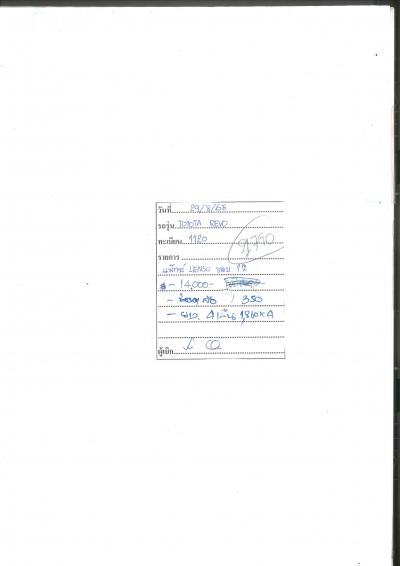 วันที่ 29/8/65
รถรุ่น TOYOTA REVO
ทะเบียน 1120
21,790
รายการ
แม็กซ์ LENSO ขอบ 17
- 14,000-
350
- ยาง 4 เส้น 1,860 x 4
ผู้เบิก